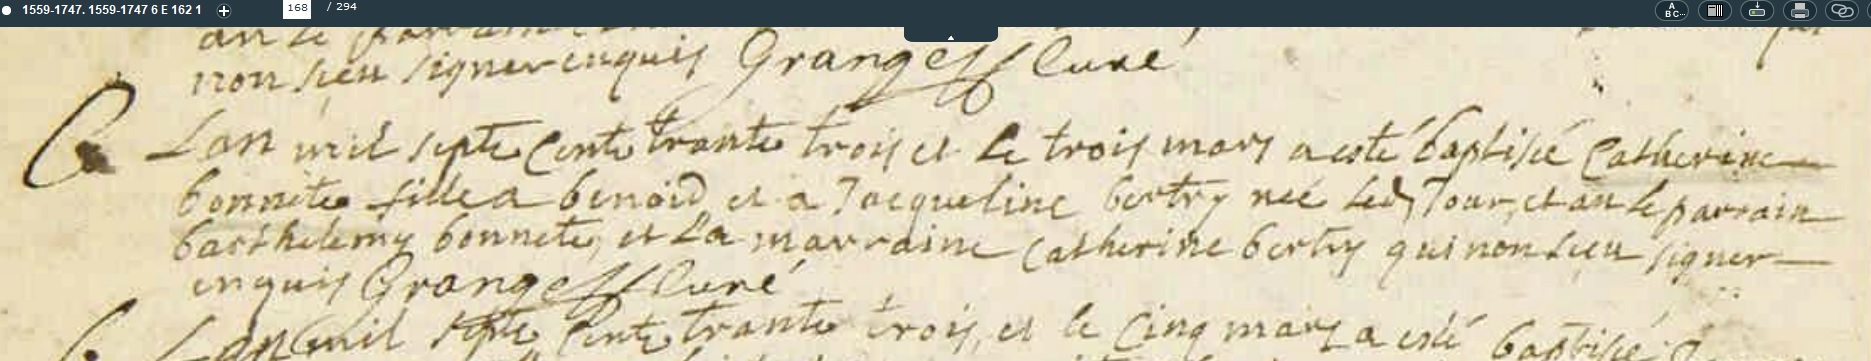 1559-1747. 1559-1747 6 E 162 1
168 / 294
A B C...
non sceu signer enquis Granges Curé
B
Lan mil septe cents trante trois et le trois mars a esté baptisée Catherine
bonnete fille a benoid et a Jacqueline bertry neé led Jour, et an le parrain
barthelemy bonnete, et La marraine Catherine bertry qui non sceu signer
enquis Granges Curé
Lan mil septe cents trante trois, et le cinq mars a esté baptisé